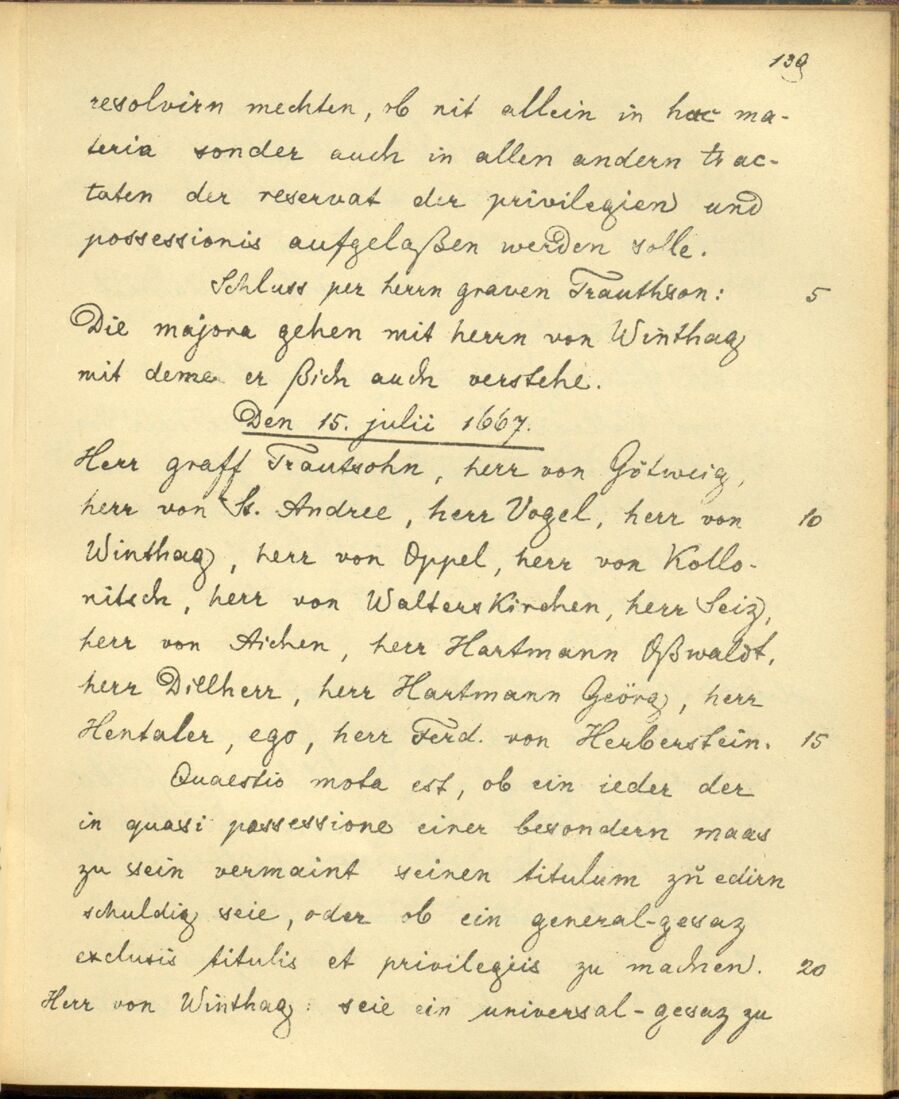 139
resolvirn mechten, ob nit allein in hac ma-
teria sonder auch in allen andern trac-
taten der reservat der privilegien und
possessionis aufgelaßen werden solle.
Schluss per herrn graven Trauthson: 5
Die majora gehen mit herrn von Winthag
mit deme er ßich auch verstehe.
Den 15. julii 1667.
Herr graff Trautsohn, herr von Götweig,
herr von St. Andree, herr Vogel, herr von 10
Winthag, herr von Oppel, herr von Kollo-
nitsch, herr von Walterskirchen, herr Seiz,
herr von Aichen, herr Hartmann Oßwaldt,
herr Dillherr, herr Hartmann Geörg, herr
Hentaler, ego, herr Ferd. von Herberstein. 15
Quaestio mota est, ob ein ieder der
in quasi possessione einer besondern maas
zu sein vermaint seinen titulum zu edirn
schuldig seie, oder ob ein general-gesaz
exclusis titulis et privilegiis zu machen. 20
Herr von Winthag: seie ein universal-gesaz zu